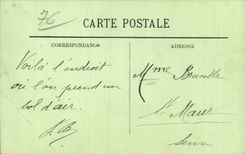 76
CARTE POSTALE
CORRESPONDANCE
ADRESSE
Voilà l'endroit
où l'on prend un
bol d'air.
Mme Brucelle
St Maur
Seine